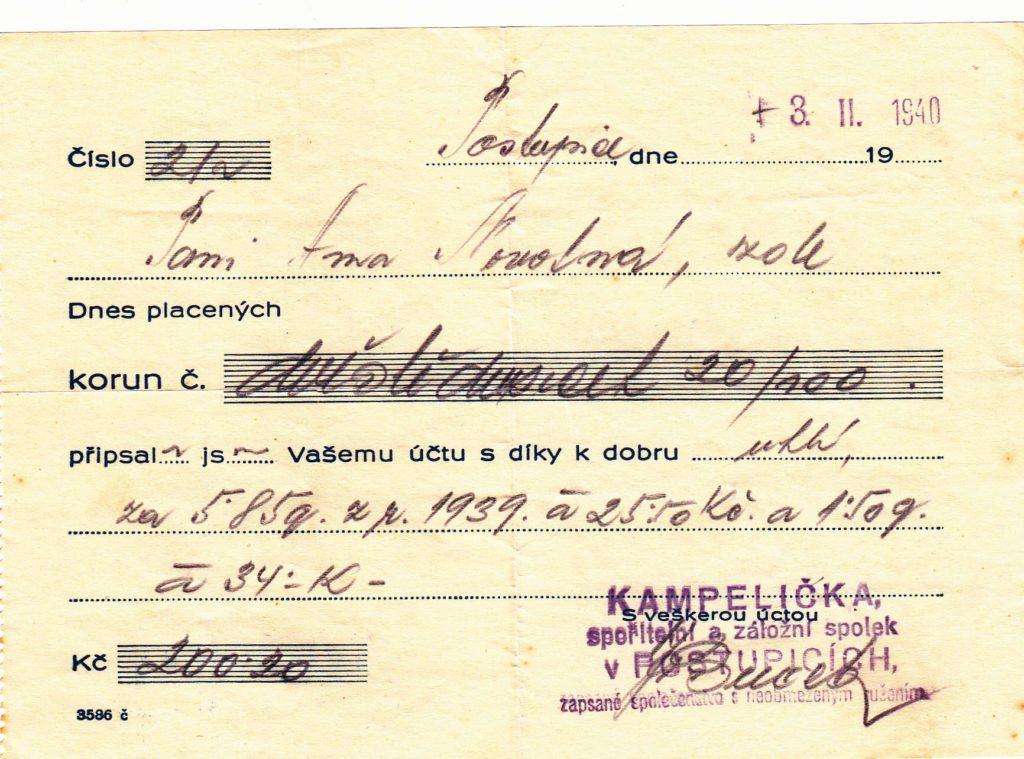 3. II. 1940
Číslo Postupice, dne 19
Paní Anna Novotná, zde
Dnes placených
korun č. dvěstě 20/100.
připsal~ js~ Vašemu účtu s díky k dobru uhlí,
za 5·85q. z r. 1939. à 25·50 Kč. a 1·50q.
à 34·- K-
Kč 200·20
KAMPELIČKA,
S veškerou úctou
spořitelní a záložní spolek
v POSTUPICÍCH,
zapsané společenstvo s neobmezeným ručením.
3586 č